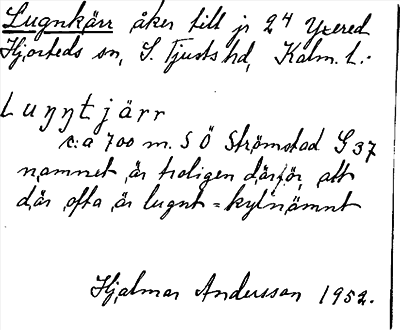 Lugnkärr åker till jr 2⁴ Yxered
Hjorteds sn, S. Tjusts hd, Kalm. l.
Luŋŋtjärr
c:a 700 m. S Ö Strömstad G 37
namnet är troligen därför, att
där ofta är lugnt =
Hjalmar Andersson 1952.